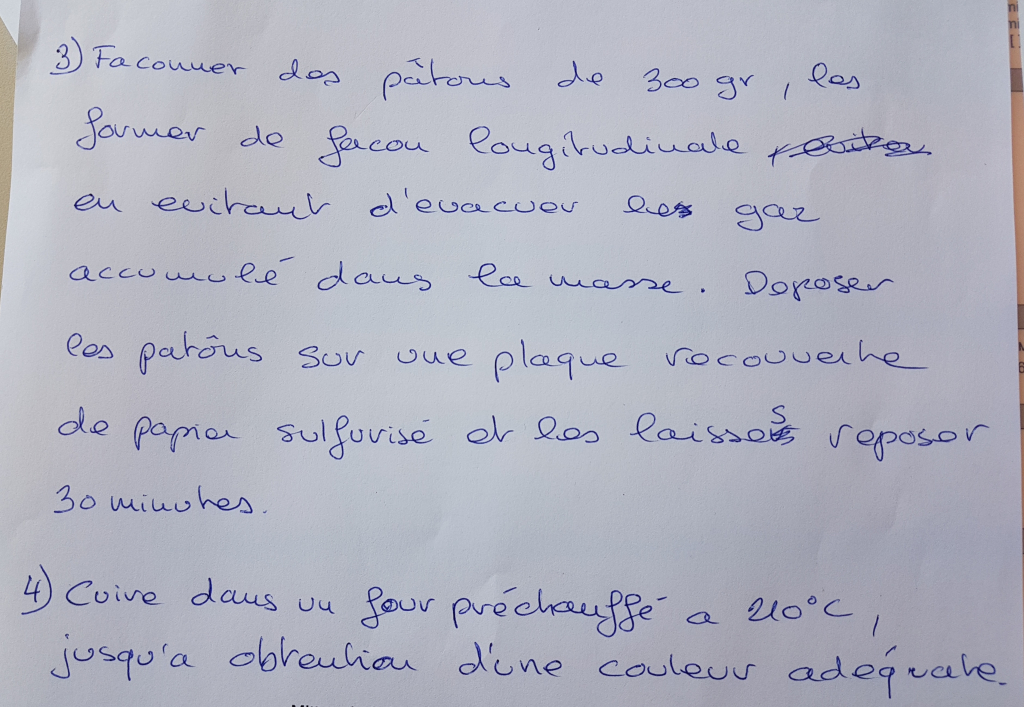 3) Faconner des pâtons de 300 gr, les
former de facon longitudinale
en evitant d'evacuer les gaz
accumulé dans la masse. Deposer
les patôns sur une plaque recouverte
de papier sulfurisé et les laisses reposer
30 minutes.
4) Cuire dans un four préchauffé a 210°C,
jusqu'a obtention d'une couleur adéquate.